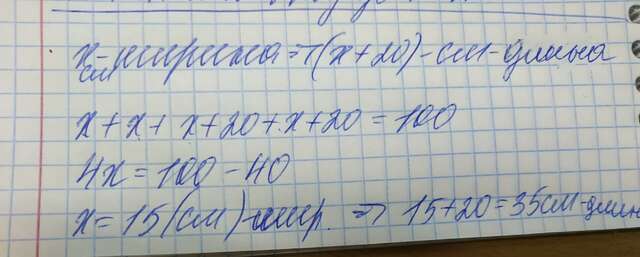 x см - ширина ⇒ (x+20) - см - длина
x + x + x+20 + x+20 = 100
4x = 100 - 40
x = 15 (см) - шир. ⇒ 15+20 = 35 см - длин